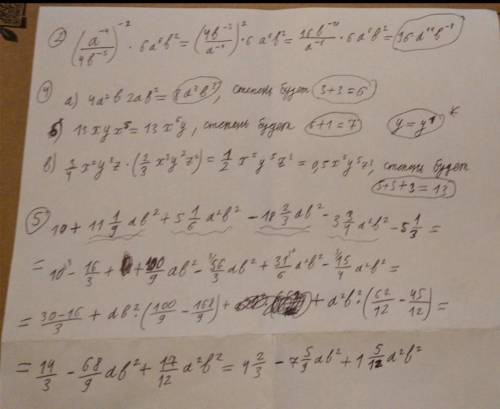 ② (a⁻⁴/4b⁻⁵)⁻² · 6a⁶b² = (4b⁻⁵/a⁻⁴)² · 6a⁶b² = 16b⁻¹⁰/a⁻⁸ · 6a⁶b² = 96a¹⁴b⁻⁸
④ а) 4a²b2ab² = 8a³b³, степень будет 3+3=6
б) 13xyx⁵ = 13x⁶y, степень будет 6+1=7 y=y¹
в) 3/4x²y²z · (2/3x³y³z²) = 1/2x⁵y⁵z³ = 0,5x⁵y⁵z³, степень будет
5+5+3=13
⑤ 10+11 1/9 ab²+5 1/6 a²b²-18 2/3 ab²-3 3/4 a²b²-5 1/3 =
= 10-16/3+100/9 ab²-56/3 ab²+31/6 a²b²-15/4 a²b² =
= 30-16/3 + ab²·(100/9-168/9) + a²b²·(62/12-45/12) =
= 14/3-68/9 ab²+17/12 a²b² = 4 2/3-7 5/9 ab²+1 5/12 a²b²